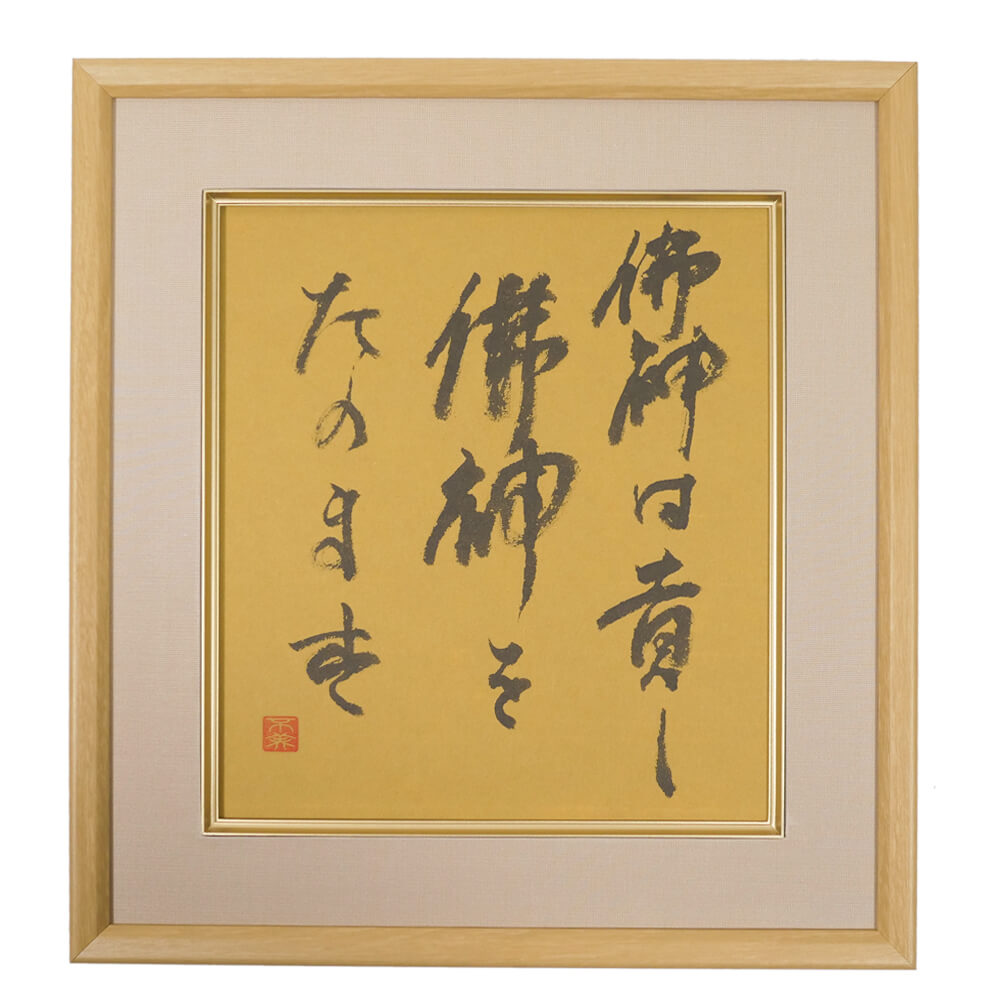 佛神は貴し
佛神を
たのます